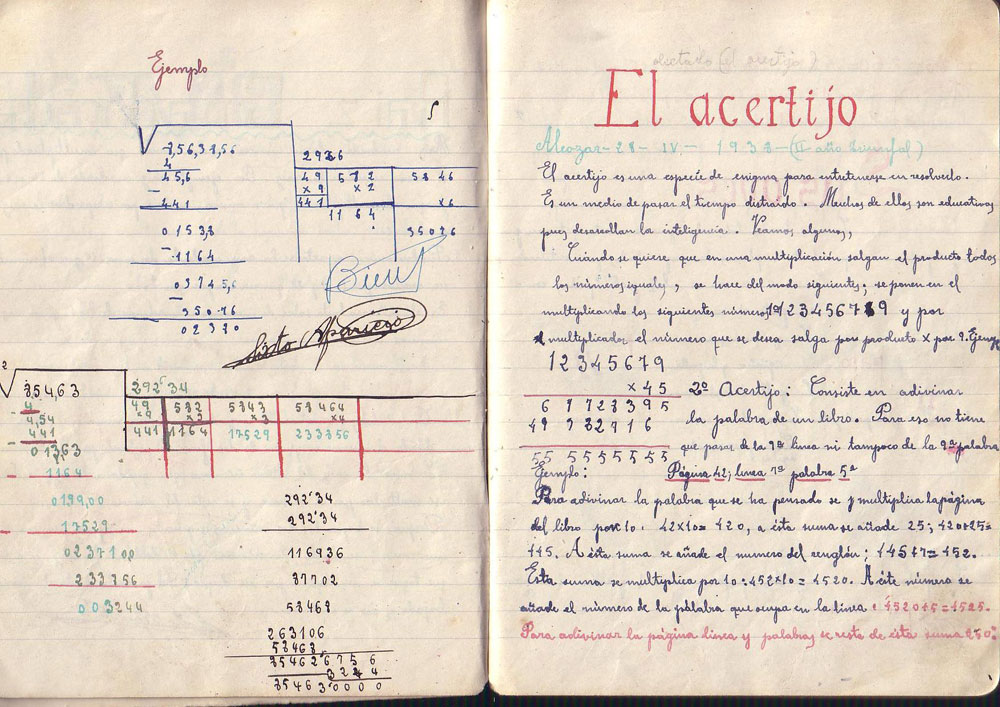 Ejemplo
8,56,38,56
2926
4
45,6
49
582
5846
× 9
× 2
×6
441
441
1164
35076
0153,8
1164
Bien
03745,6
35076
02380
Sixto Aparicio
2
85463
292'34
4
49
582
5843
58464
4,54
441
441
1164
17529
233856
013,63
1164
0199,00
292'34
17529
292'34
237100
116936
233856
87702
003244
58468
263106
58468
85462'6756
3244
85463'0000
dictado (el acertijo)
El acertijo
Alcozar-28-IV.-1938-(II año triunfal)
El acertijo es una especie de enigma para entretenerse en resolverlo.
Es un medio de pasar el tiempo distraido. Muchos de ellos son educativos
pues desarrollan la inteligencia. Veamos algunos,
Cuándo se quiere que en una multiplicación salgan el producto todos
los números iguales, se hace del modo siguientes; se ponen en el
multiplicando los siguientes números 12345679 y por
multiplicador el número que se desea salga por producto × por 9. Ejemp
12345679
×45
2º Acertijo: Consiste en adivinar
61728395
la palabra de un libro. Para eso no tiene
49382716
que pasar de la 9ª linea ni tampoco de la 9ª palabra
555555555
Ejemplo: Página 42, linea 7ª palabra 5ª
Para adivinar la palabra que se ha pensado se multiplica la página
del libro por 10. 42×10=420, a ésta suma se añade 25; 420+25=
445. A ésta suma se añade el numero del renglón; 445+7=452.
Esta suma se multiplica por 10: 452×10=4520. A éste número se
añade el número de la palabra que ocupa en la linea: 4520+5=4525.
Para adivinar la página linea y palabras se resta de ésta suma 250.